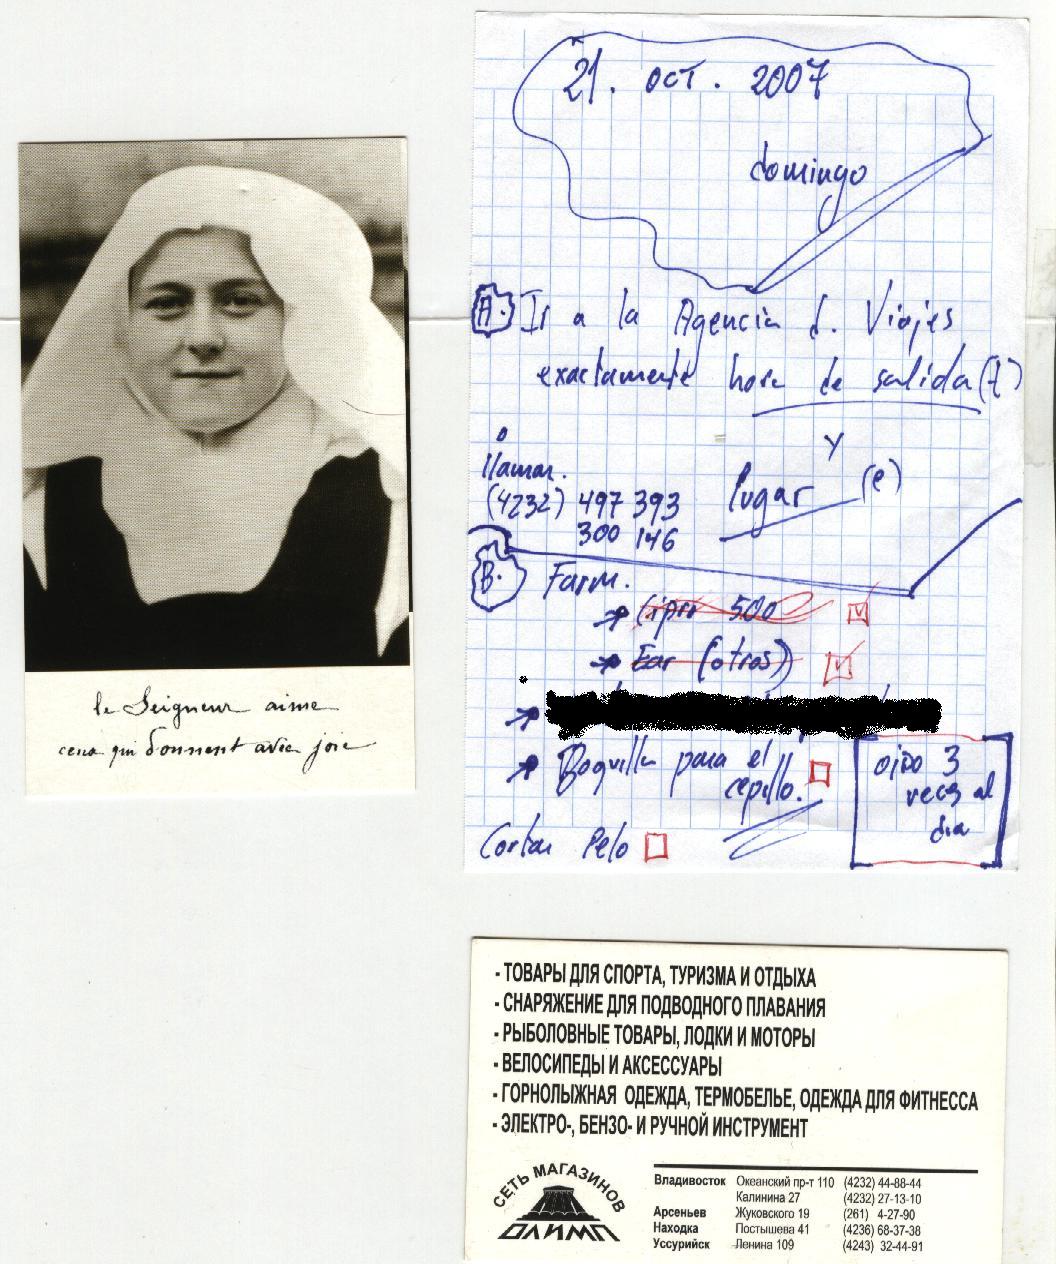 le Seigneur aime
ceux qui donnent avec joie
21. OCT. 2007
domingo
A. Ir a la Agencia d. Viajes
exactamente hora de salida (t)
y
o
llamar.
lugar (e)
(4232) 497 393
300 146
B. Farm.
Cipro 500
Ear (otros)
Boquilla para el
cepillo.
oido 3
veces al
dia
Cortar Pelo
- ТОВАРЫ ДЛЯ СПОРТА, ТУРИЗМА И ОТДЫХА
- СНАРЯЖЕНИЕ ДЛЯ ПОДВОДНОГО ПЛАВАНИЯ
- РЫБОЛОВНЫЕ ТОВАРЫ, ЛОДКИ И МОТОРЫ
- ВЕЛОСИПЕДЫ И АКСЕССУАРЫ
- ГОРНОЛЫЖНАЯ ОДЕЖДА, ТЕРМОБЕЛЬЕ, ОДЕЖДА ДЛЯ ФИТНЕССА
- ЭЛЕКТРО-, БЕНЗО- И РУЧНОЙ ИНСТРУМЕНТ
СЕТЬ МАГАЗИНОВ
ОЛИМП
Владивосток Океанский пр-т 110 (4232) 44-88-44
Калинина 27 (4232) 27-13-10
Арсеньев Жуковского 19 (261) 4-27-90
Находка Постышева 41 (4236) 68-37-38
Уссурийск Ленина 109 (4243) 32-44-91